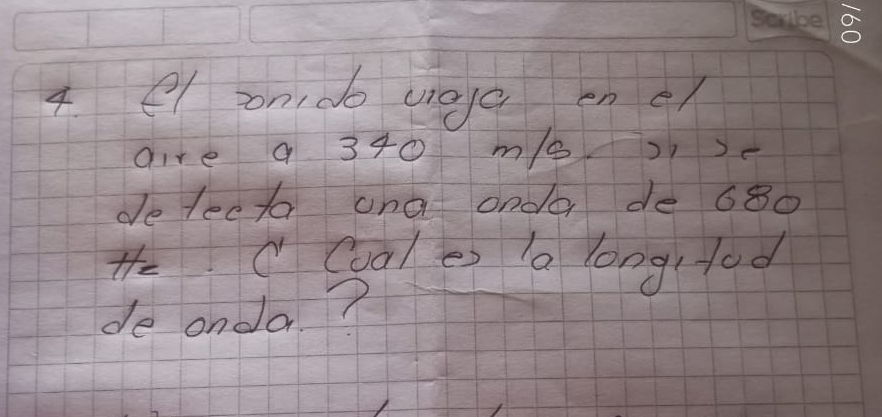 Scribe
/60
4. El sonido viaja en el
aire a 340 m/s. si se
detecta una onda de 680
Hz. ¿ Cual es la longitud
de onda.?